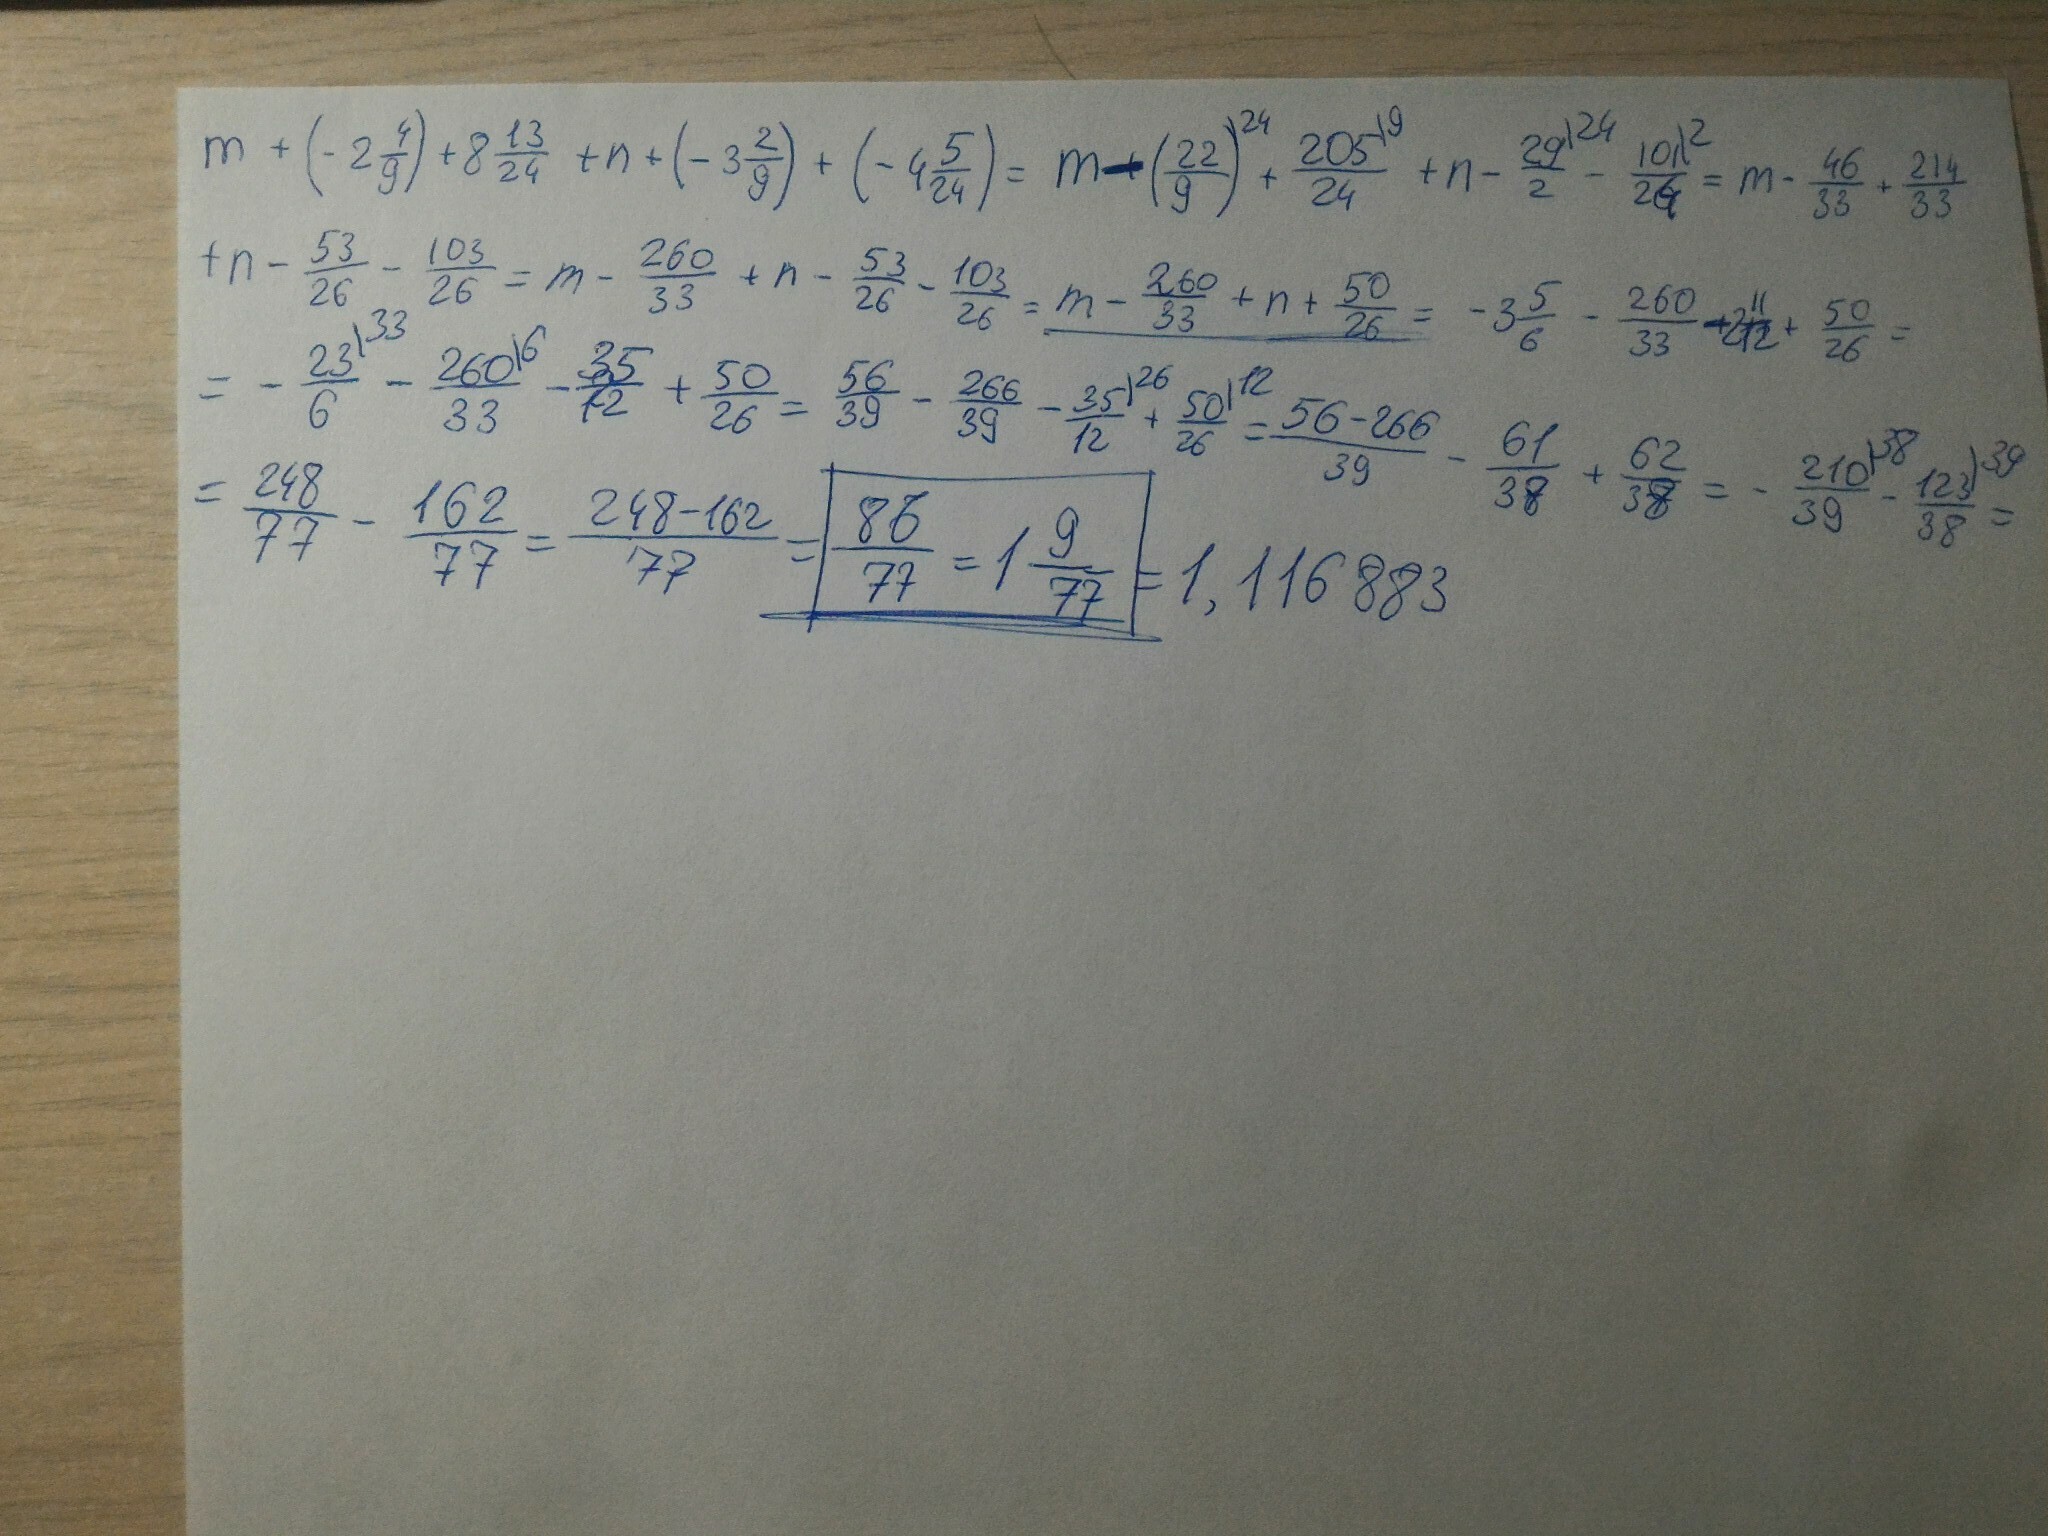 m + (-2 4/9) + 8 13/24 + n + (-3 2/9) + (-4 5/24) = m - (22/9)\24 + 205/24\9 + n - 29/2\24 - 101/24\2 = m - 46/33 + 214/33
+ n - 53/26 - 103/26 = m - 260/33 + n - 53/26 - 103/26 = m - 260/33 + n + 50/26 = -3 5/6 - 260/33 - 2 11/12 + 50/26 =
= - 23/6\33 - 260/33\6 - 35/12 + 50/26 = 56/39 - 266/39 - 35/12\26 + 50/26\12 = 56-266/39 - 61/38 + 62/38 = - 210/39\38 - 123/38\39 =
= 248/77 - 162/77 = 248-162/77 = 86/77 = 1 9/77 = 1,116883